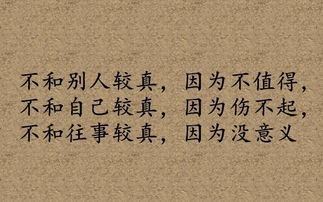 不和别人较真，因为不值得，
不和自己较真，因为伤不起，
不和往事较真，因为没意义